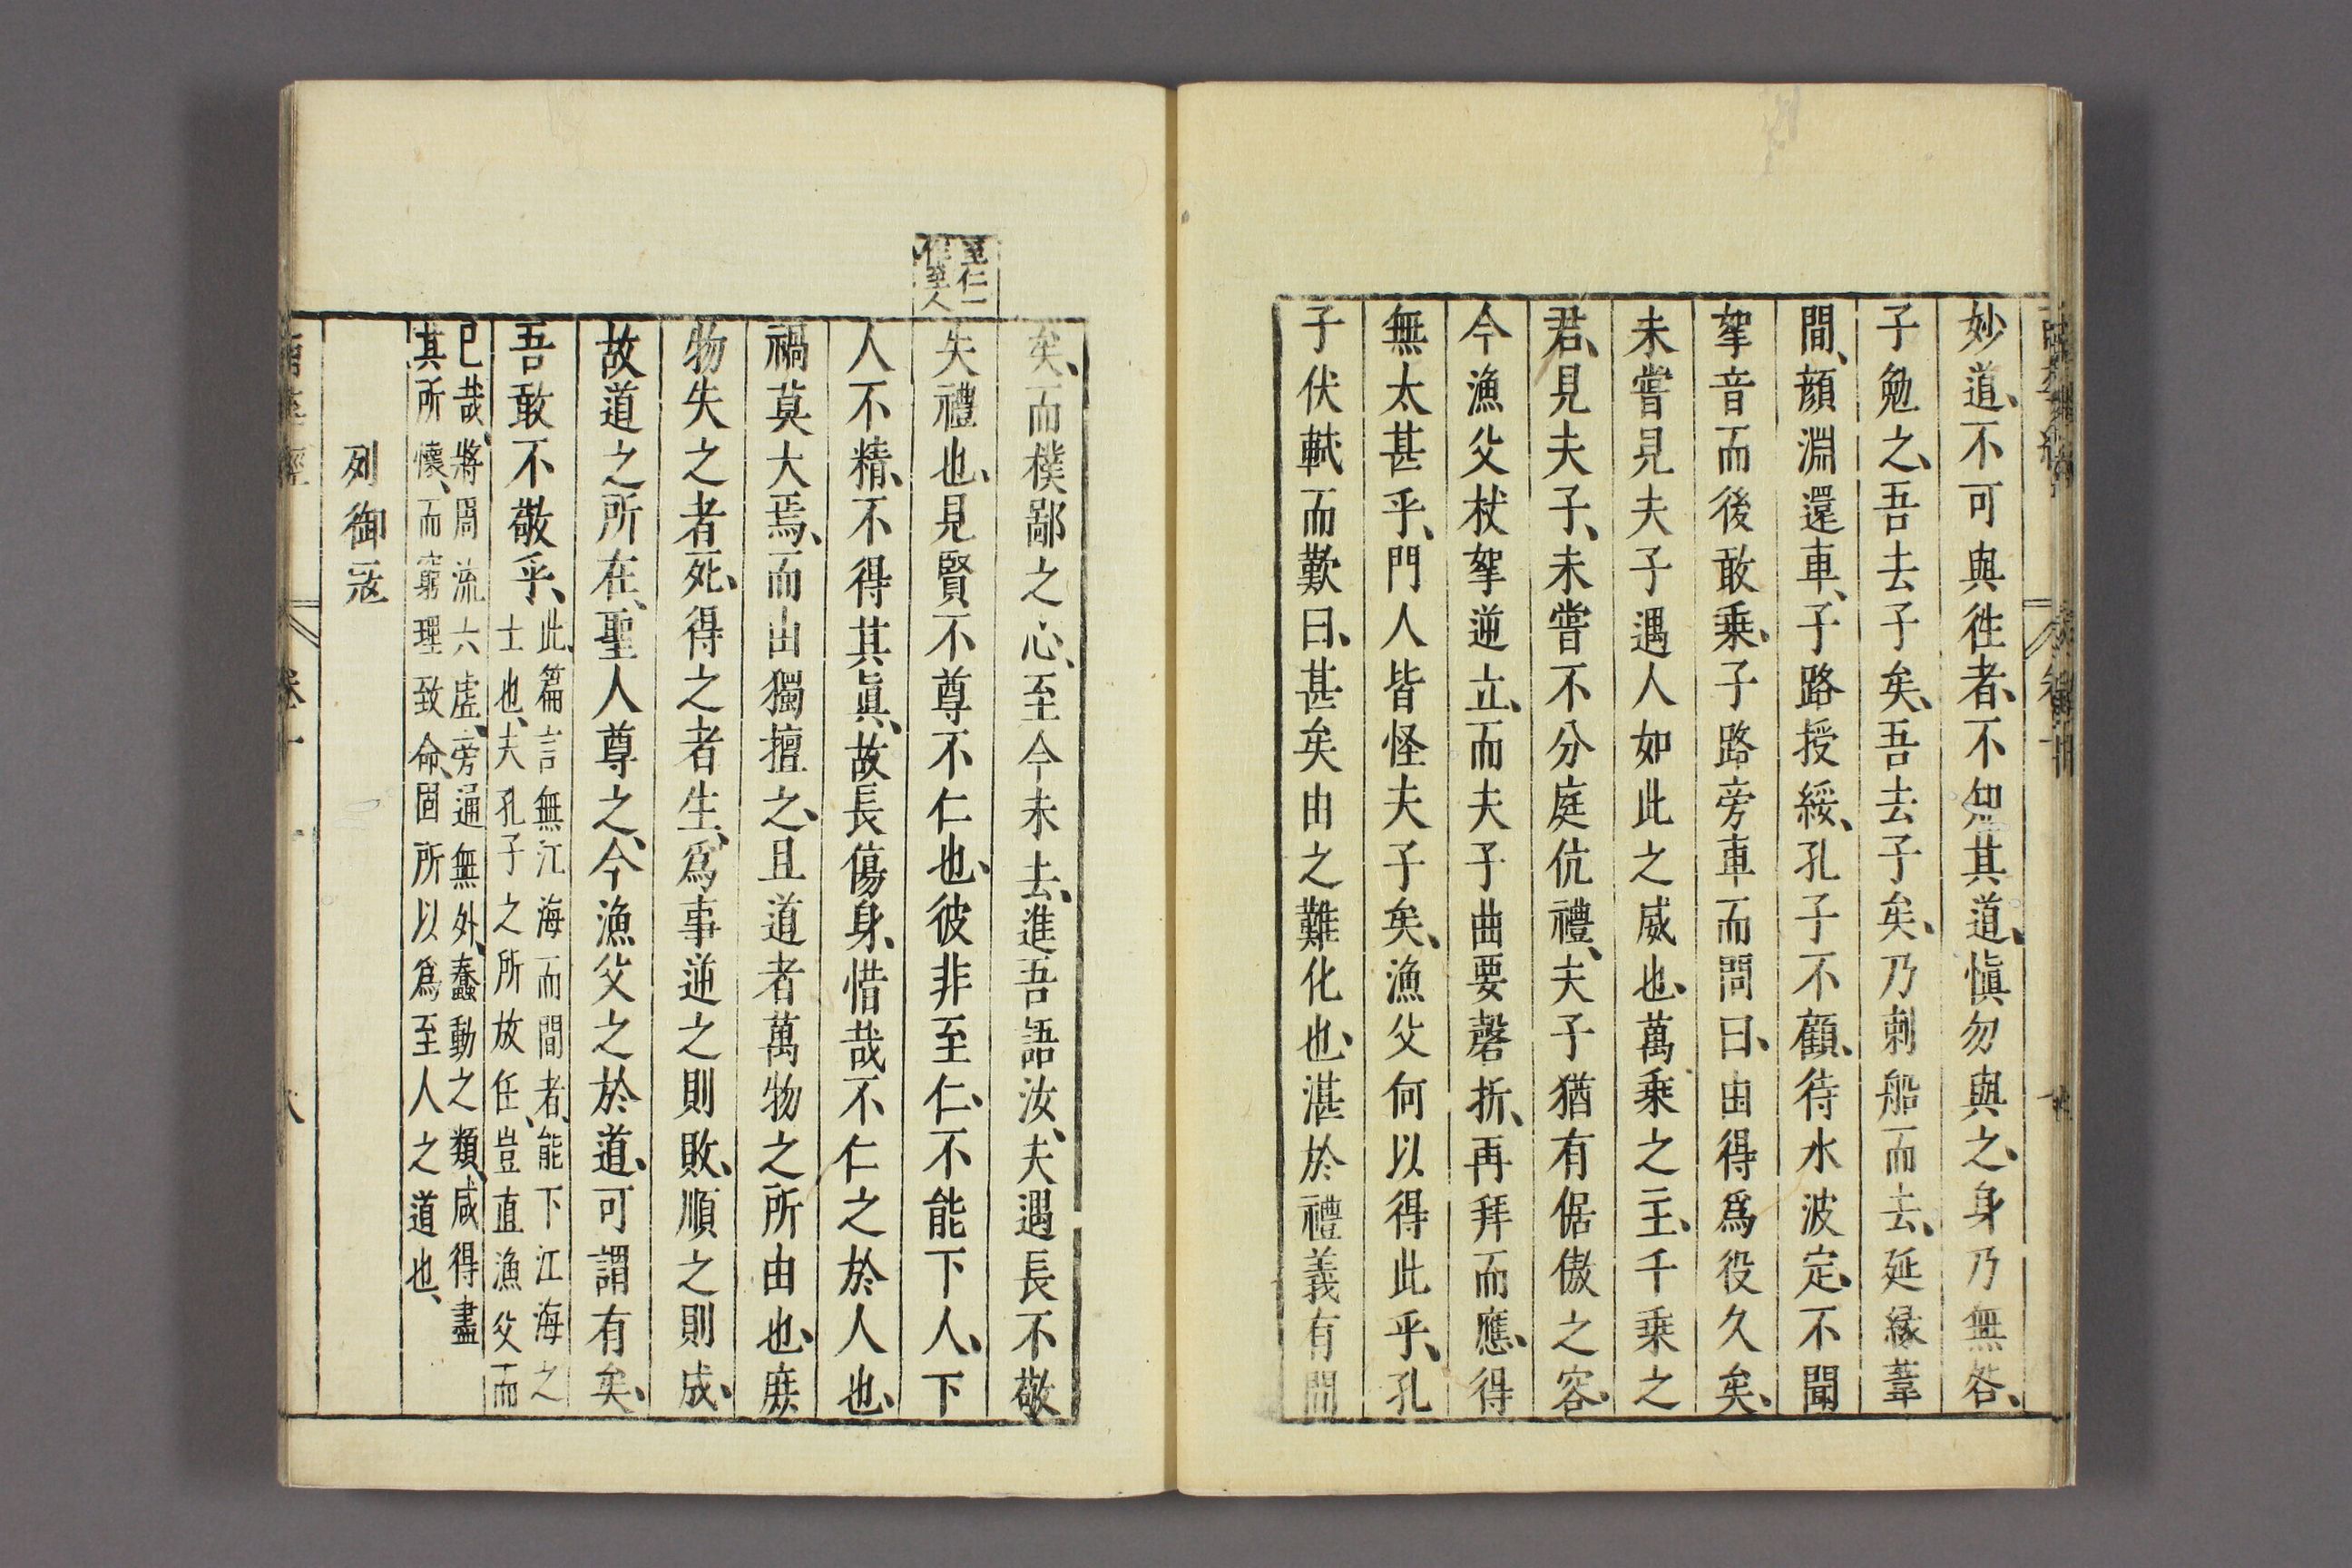 妙道、不可與徃者、不知其道、愼勿與之、身乃無咎、
子勉之、吾去子矣、吾去子矣、乃刺船而去、延緣葦
間、顔淵還車、子路授綏、孔子不顧、待水波定、不聞
挐音而後敢乗、子路旁車而問曰、由得爲役久矣、
未嘗見夫子遇人如此之威也、萬乗之主、千乗之
君、見夫子、未嘗不分庭伉禮、夫子猶有倨傲之容、
今漁父杖挐逆立、而夫子曲要磬折、再拜而應、得
無太甚乎、門人皆怪夫子矣、漁父何以得此乎、孔
子伏軾而歎曰、甚矣由之難化也、湛於禮義有間
矣、而樸鄙之心、至今未去、進吾語汝、夫遇長不敬
至仁一
作至人
失禮也、見賢不尊不仁也、彼非至仁、不能下人、下
人不精、不得其眞、故長傷身、惜哉不仁之於人也、
禍莫大焉、而由獨擅之、且道者萬物之所由也、庶
物失之者死、得之者生、爲事逆之則敗、順之則成、
故道之所在、聖人尊之、今漁父之於道、可謂有矣、
吾敢不敬乎、
此篇言無江海而間者、能下江海之
士也、夫孔子之所放任、豈直漁父而
已哉、將周流六虛、旁通無外、蠢動之類、咸得盡
其所懷、而窮理致命、固所以爲至人之道也、
列御寇